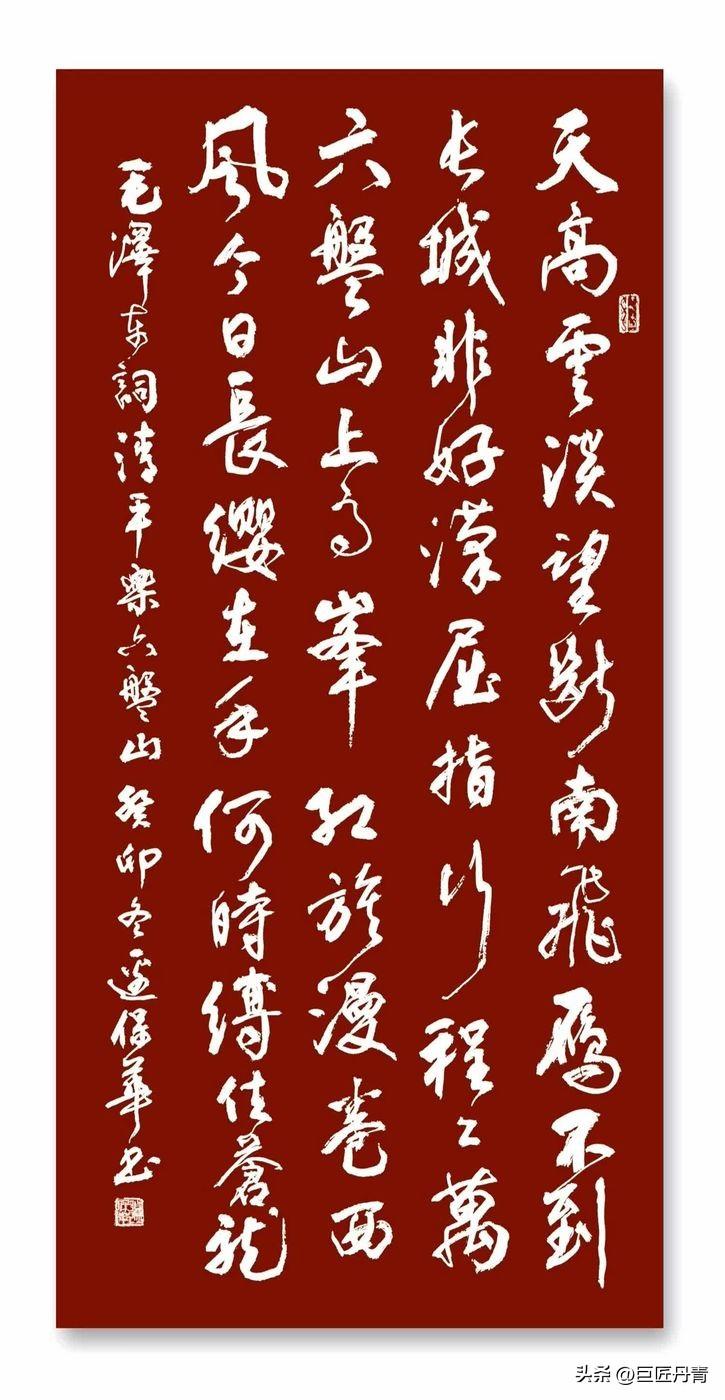 天高雲淡望斷南飛雁不到
长城非好漢屈指行程二萬
六盤山上高峯红旗漫卷西
風今日長纓在手何時縛住蒼龍
毛澤东詞清平樂六盤山癸卯冬邊保華书
头条 @巨匠丹青